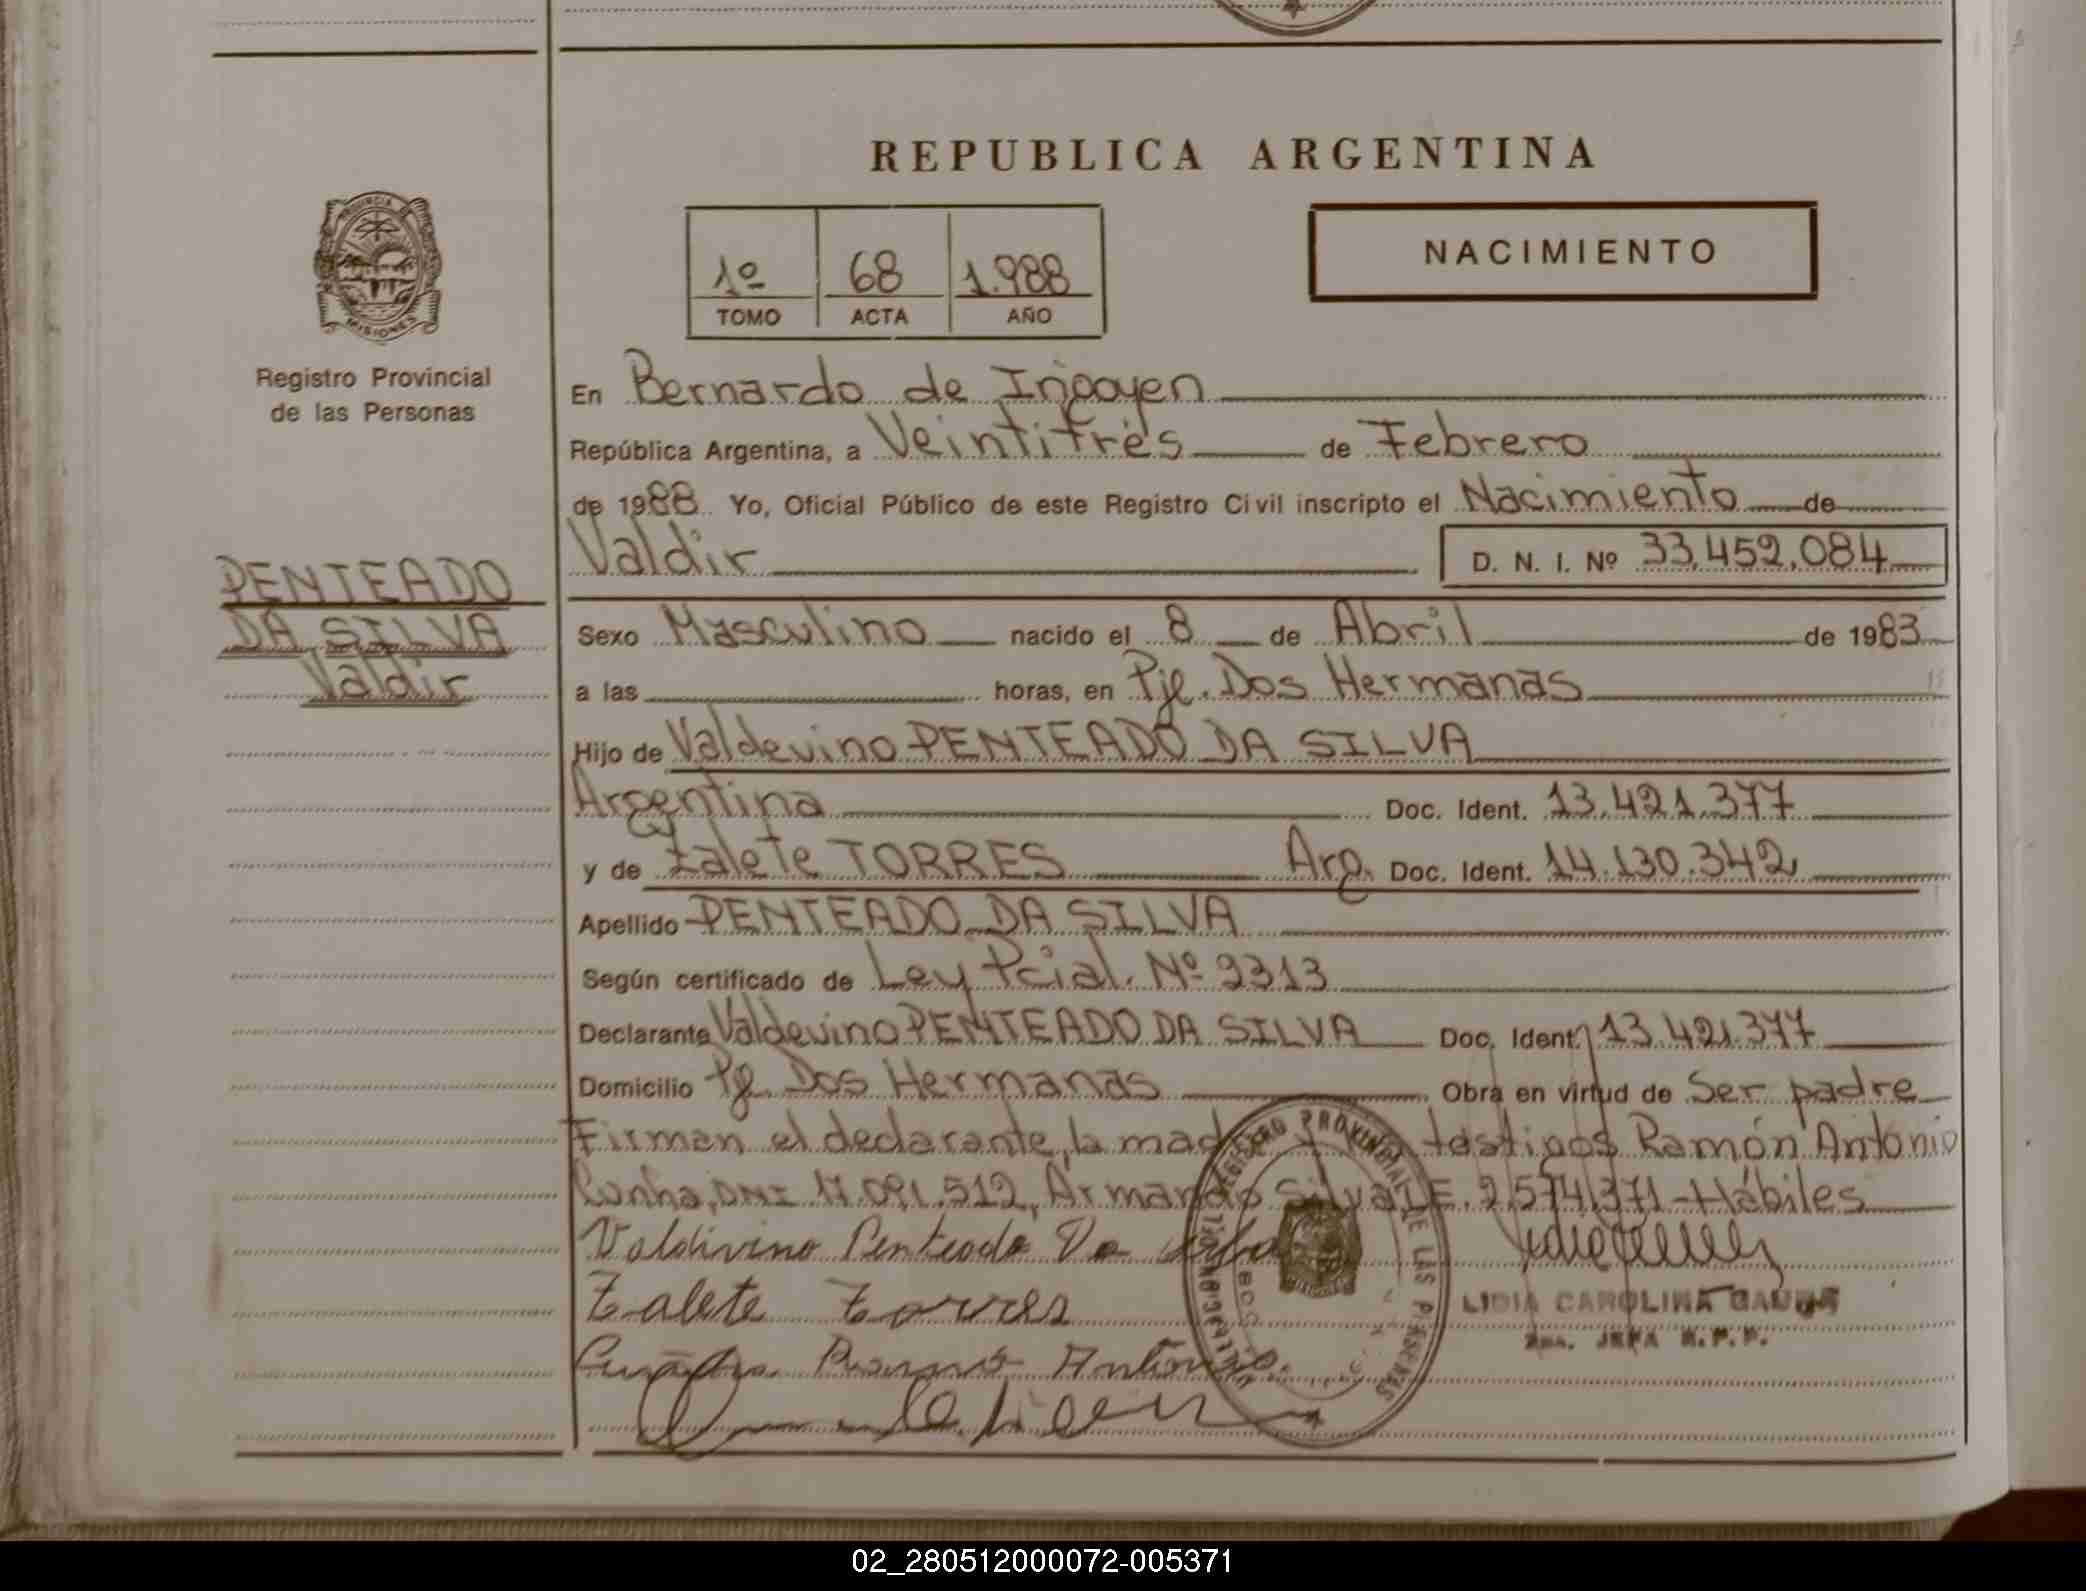 REPUBLICA ARGENTINA
PROVINCIA
MISIONES
Registro Provincial
de las Personas
1º 68 1.988
TOMO ACTA AÑO
NACIMIENTO
En Bernardo de Irigoyen
República Argentina, a Veintitrés de Febrero
de 1988 Yo, Oficial Público de este Registro Civil inscripto el Nacimiento de
Valdir D. N. I. Nº 33,452,084
PENTEADO
DA SILVA
Valdir
Sexo Masculino nacido el 8 de Abril de 1983
a las horas, en Pje. Dos Hermanas
Hijo de Valdevino PENTEADO DA SILVA
Argentina Doc. Ident. 13.421.377
y de Zalete TORRES Arg. Doc. Ident. 14.130.342
Apellido PENTEADO DA SILVA
Según certificado de Ley Pcial. Nº 2313
Declarante Valdevino PENTEADO DA SILVA Doc. Ident. 13.421.377
Domicilio Pje. Dos Hermanas Obra en virtud de Ser padre
Firman el declarante, la madre y testigos Ramón Antonio
Cunha, DNI 17.091.512, Armando Silva L.E. 2.574.371-Hábiles
Valdivino Penteado Da Silva
Zalete Torres
LIDIA CAROLINA
JEFA R.P.P.
Ramon Antonio
REGISTRO PROVINCIAL DE LAS PERSONAS
02_280512000072-005371